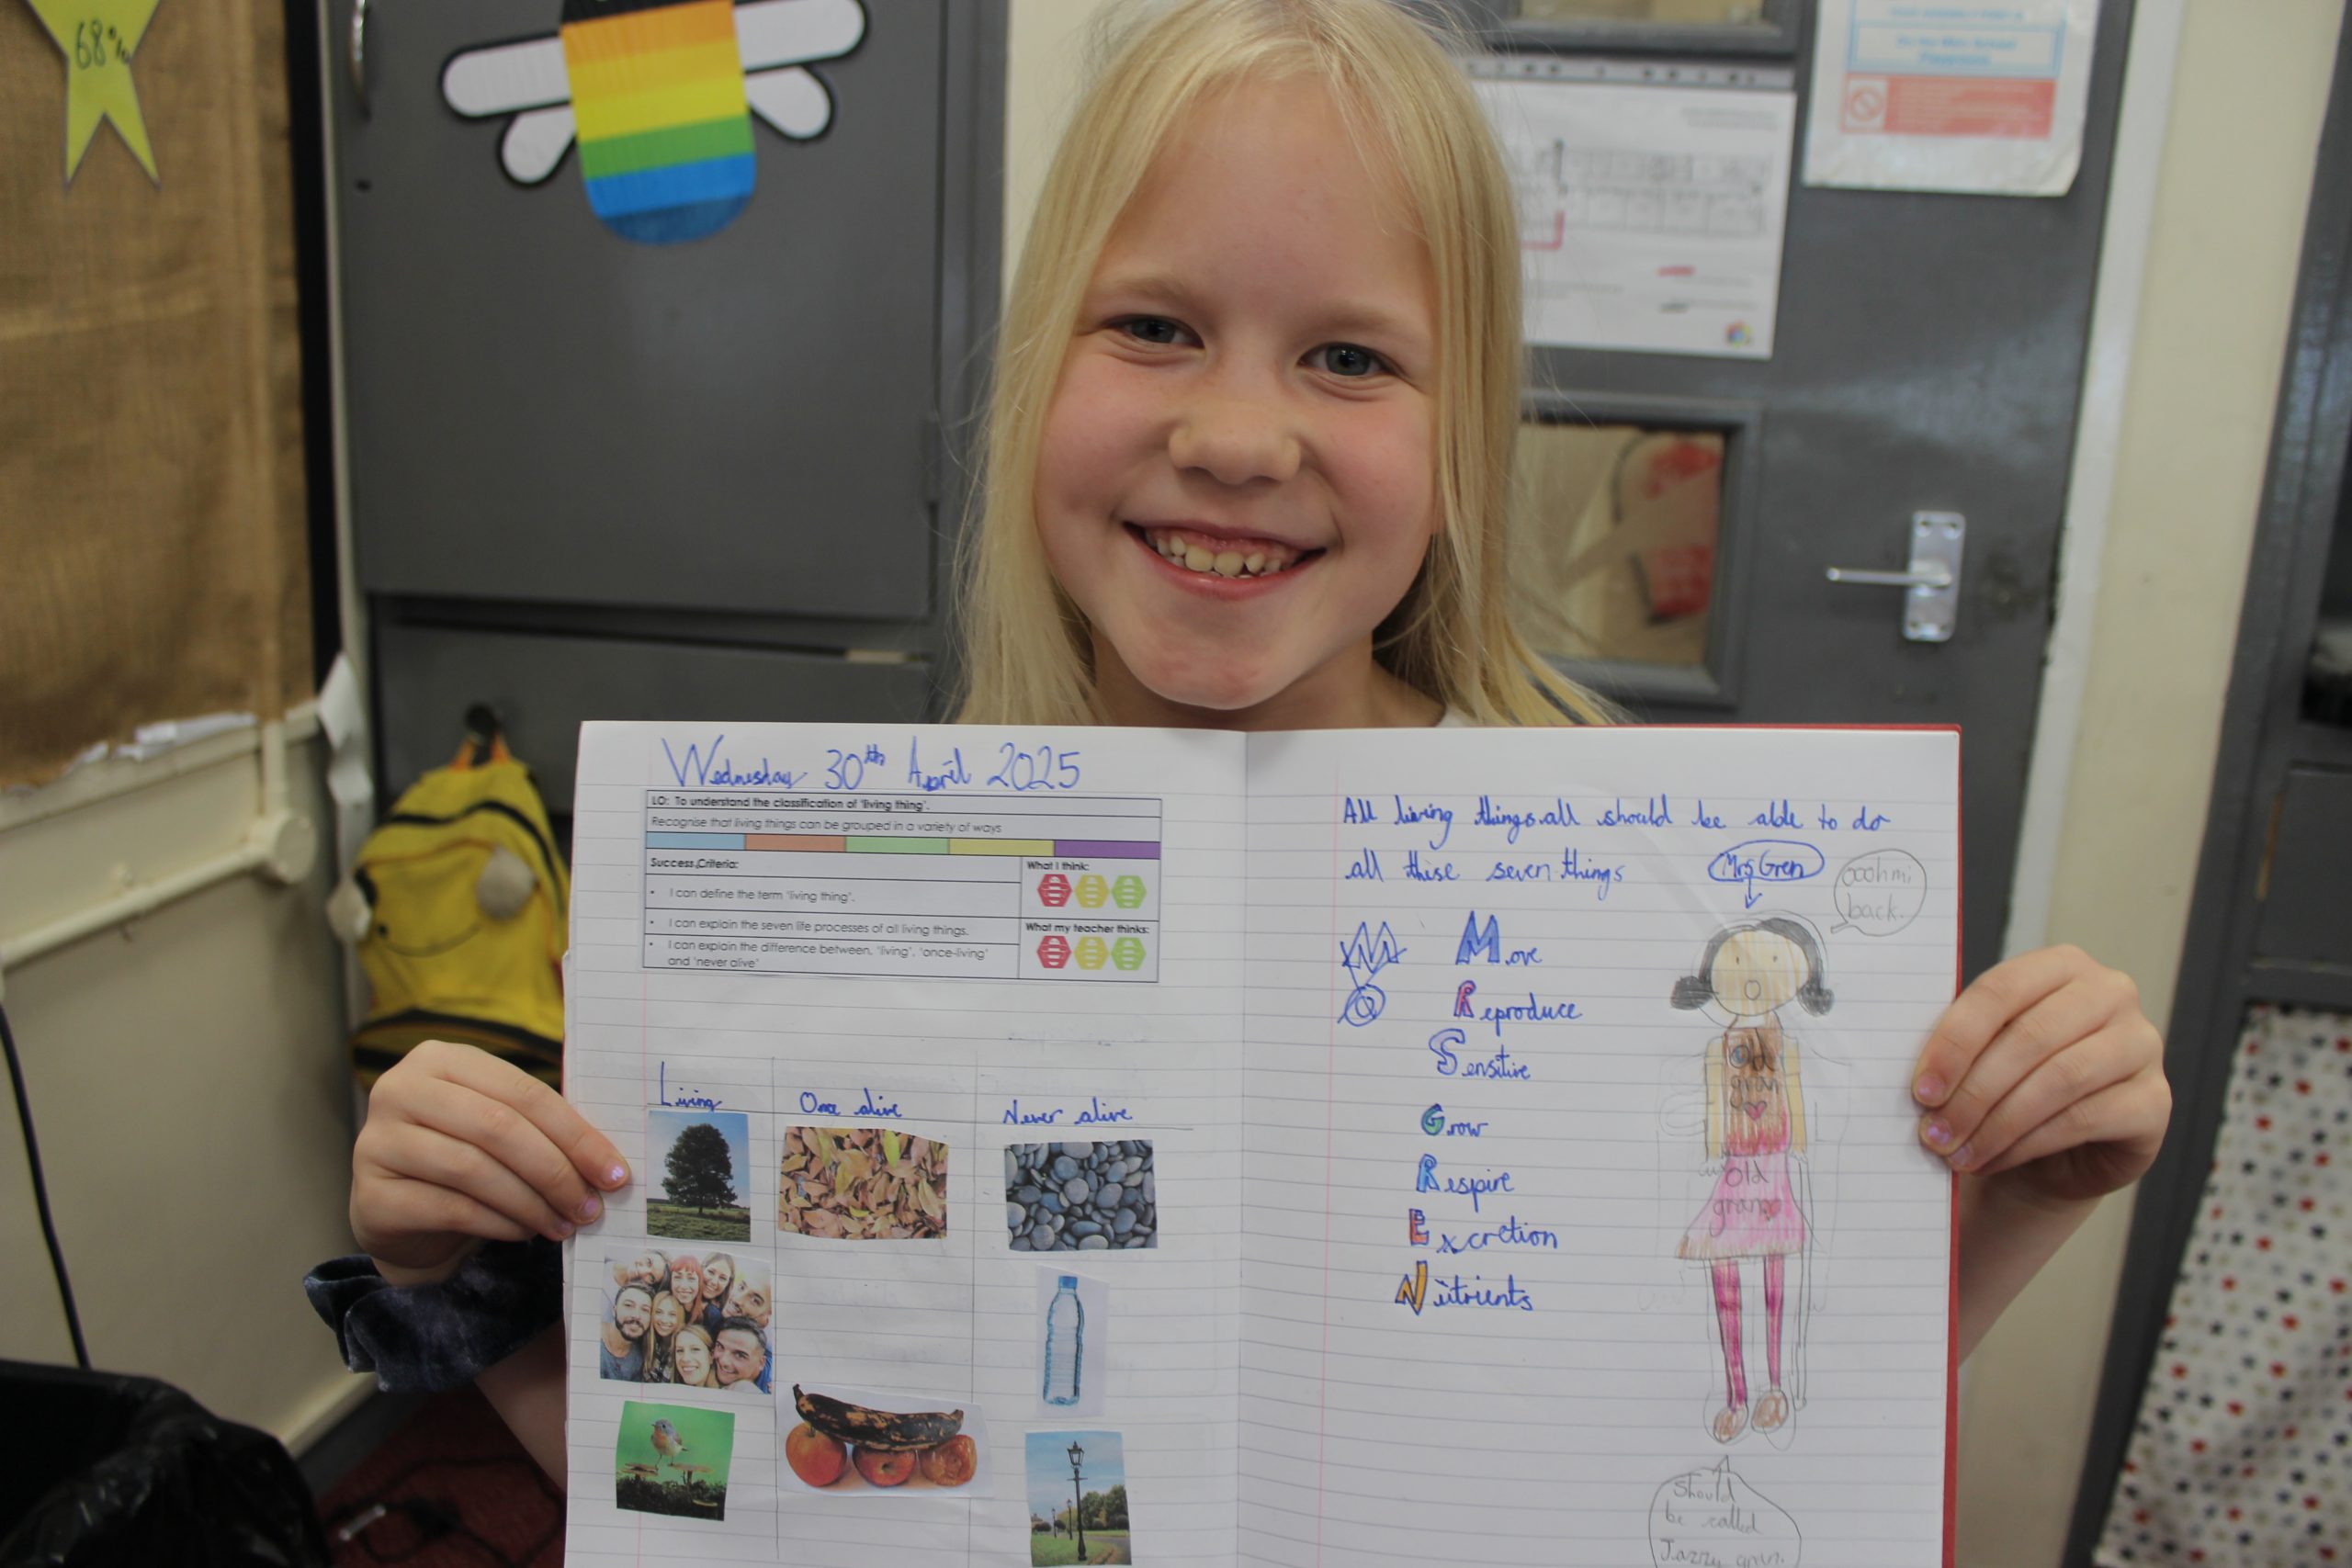 68%
Wednesday 30th April 2025
LO: To understand the classification of 'living thing'.
Recognise that living things can be grouped in a variety of ways
Success Criteria:
What I think:
• I can define the term 'living thing'.
• I can explain the seven life processes of all living things.
What my teacher thinks:
• I can explain the difference between, 'living', 'once-living'
and 'never alive'
Living
Once alive
Never alive
All living things all should be able to do
all these seven things
Mrs Gren
oooh mi
back.
Move
Reproduce
Sensitive
Grow
Respire
Excretion
Nutrients
Old
gran
Old
Should
be called
Jazzy gran.